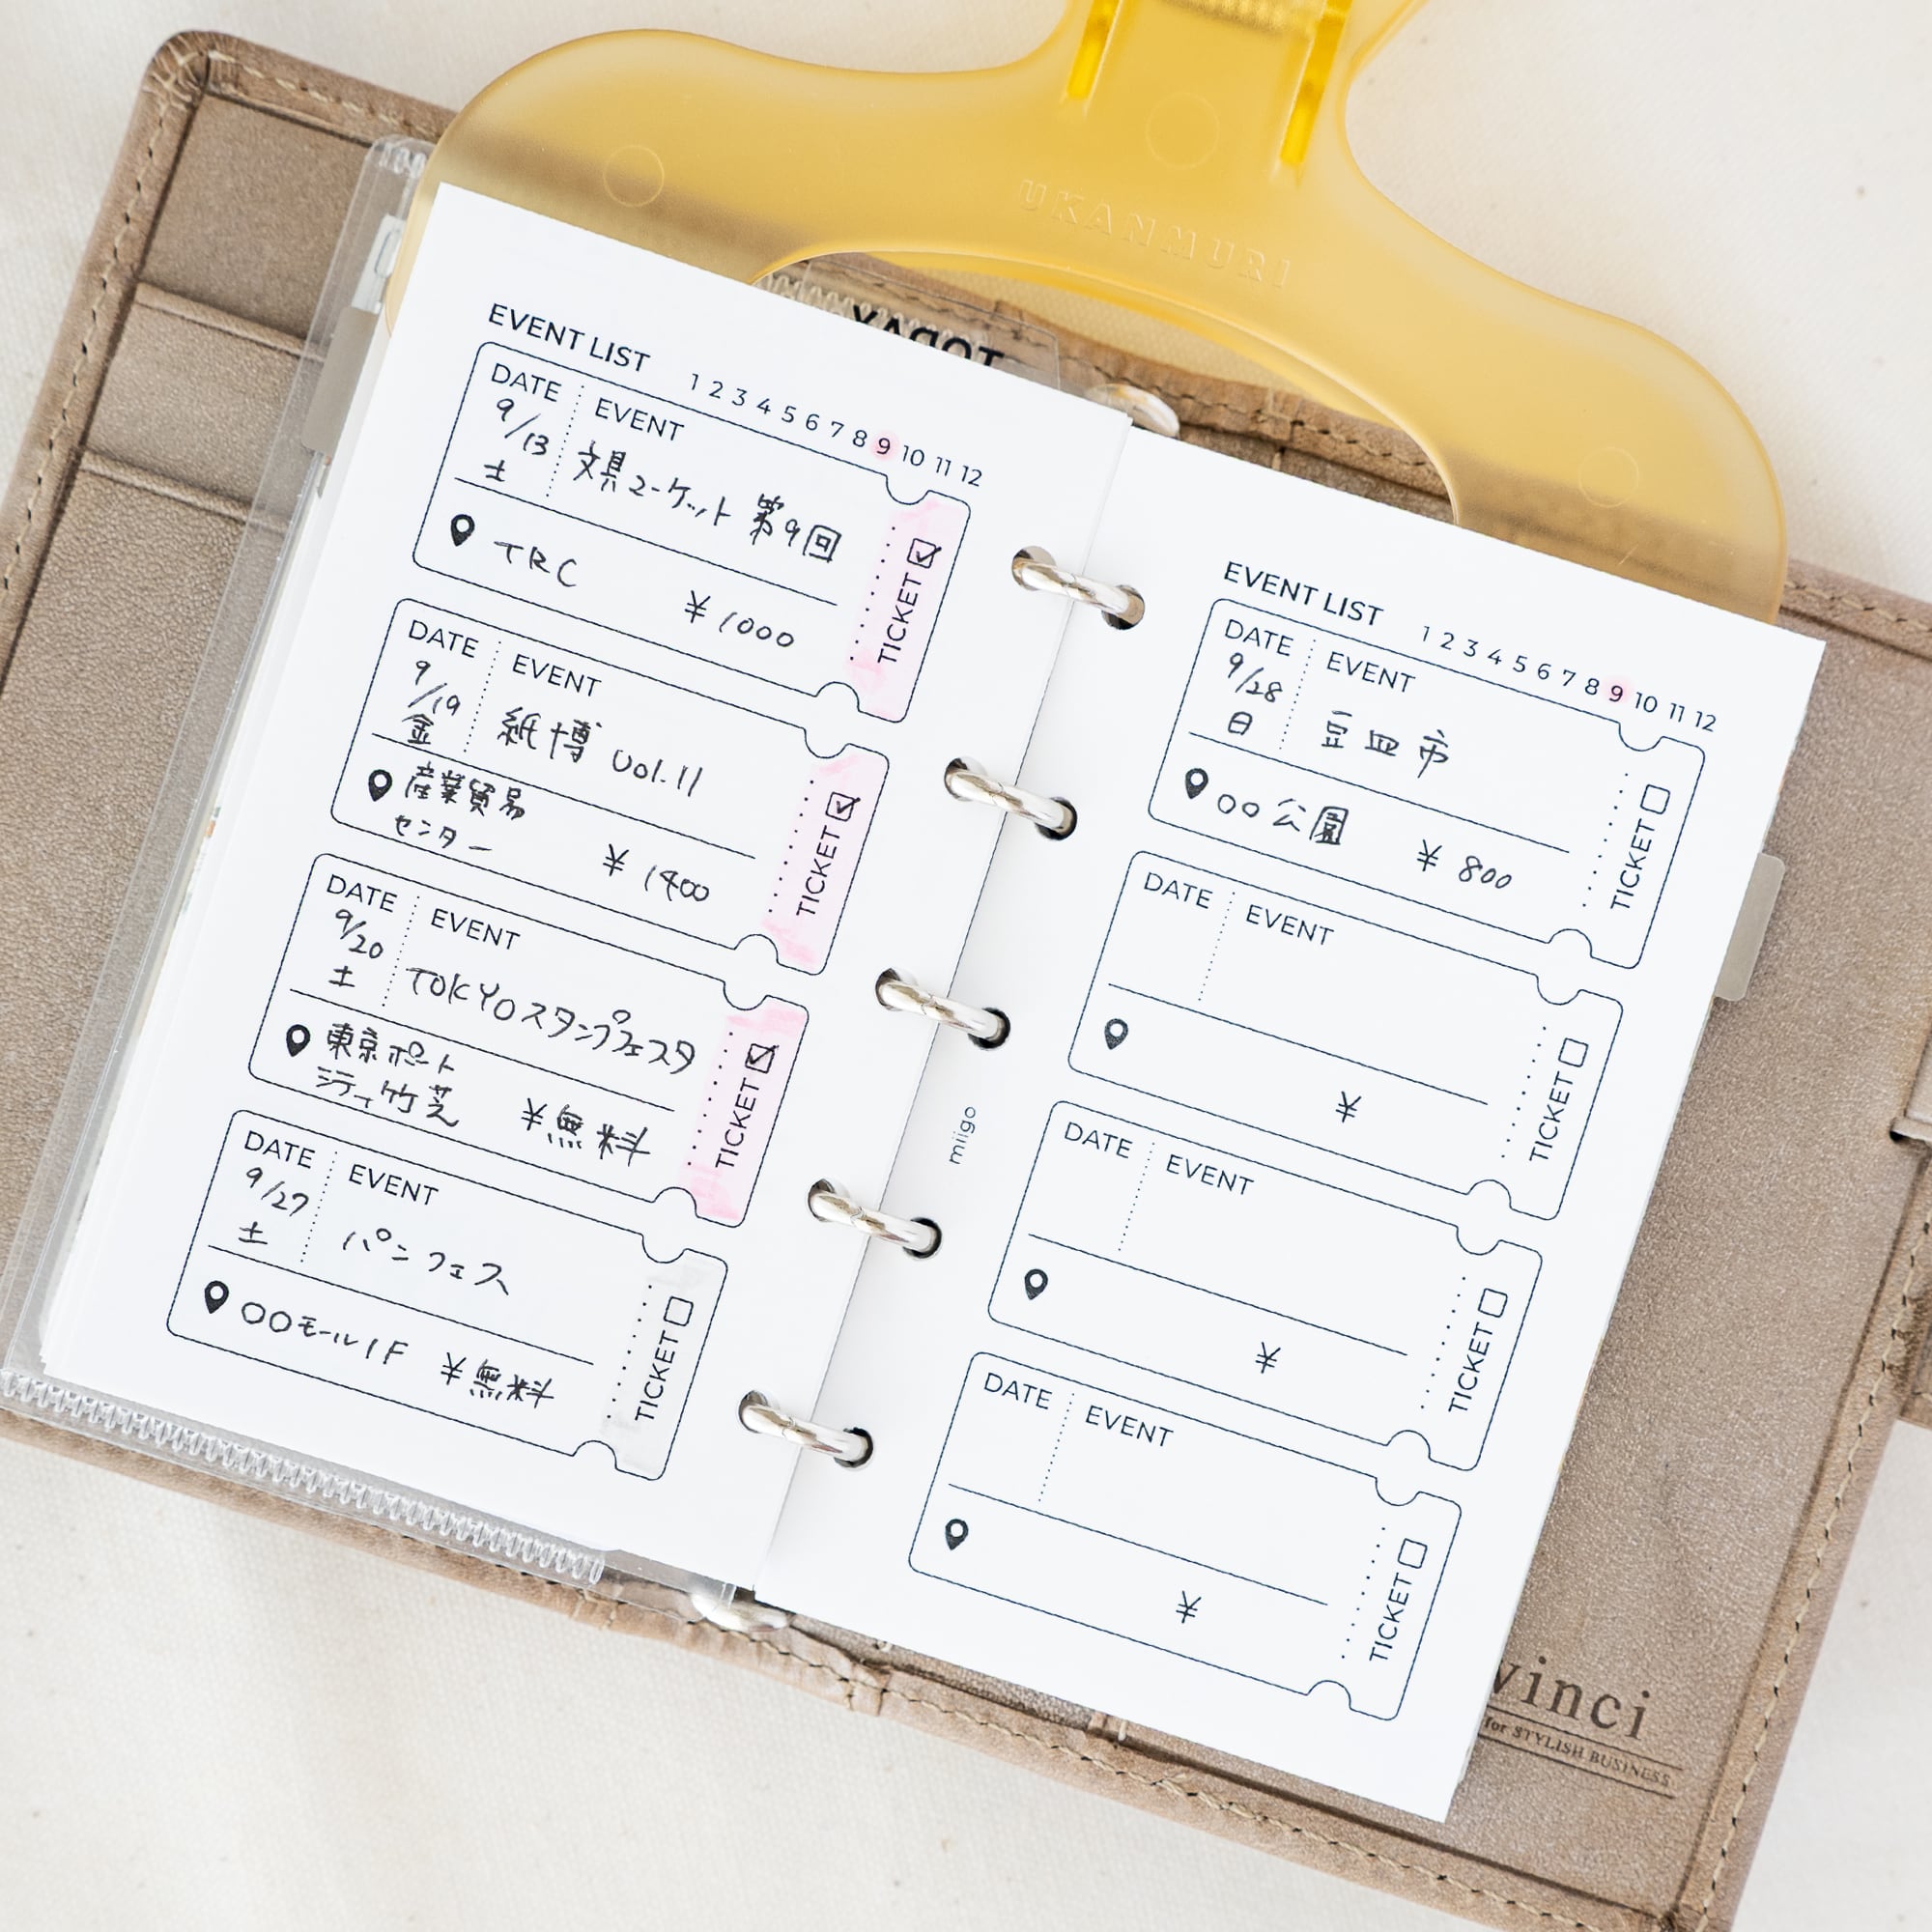 UKANMURI
TODAY
EVENT LIST
1 2 3 4 5 6 7 8 9 10 11 12
DATE
EVENT
9/13
土
文具マーケット 第9回
TRC
¥ 1000
TICKET
DATE
EVENT
9/19
金
紙博 vol.11
産業貿易
センター
¥ 1400
TICKET
DATE
EVENT
9/20
土
TOKYOスタンプフェスタ
東京ポート
シティ竹芝
¥無料
TICKET
DATE
EVENT
9/27
土
パンフェス
○○モール1F
¥無料
TICKET
miigo
EVENT LIST
1 2 3 4 5 6 7 8 9 10 11 12
DATE
EVENT
9/28
日
豆皿市
○○公園
¥ 800
TICKET
DATE
EVENT
¥
TICKET
DATE
EVENT
¥
TICKET
DATE
EVENT
¥
TICKET
vinci
for STYLISH BUSINESS